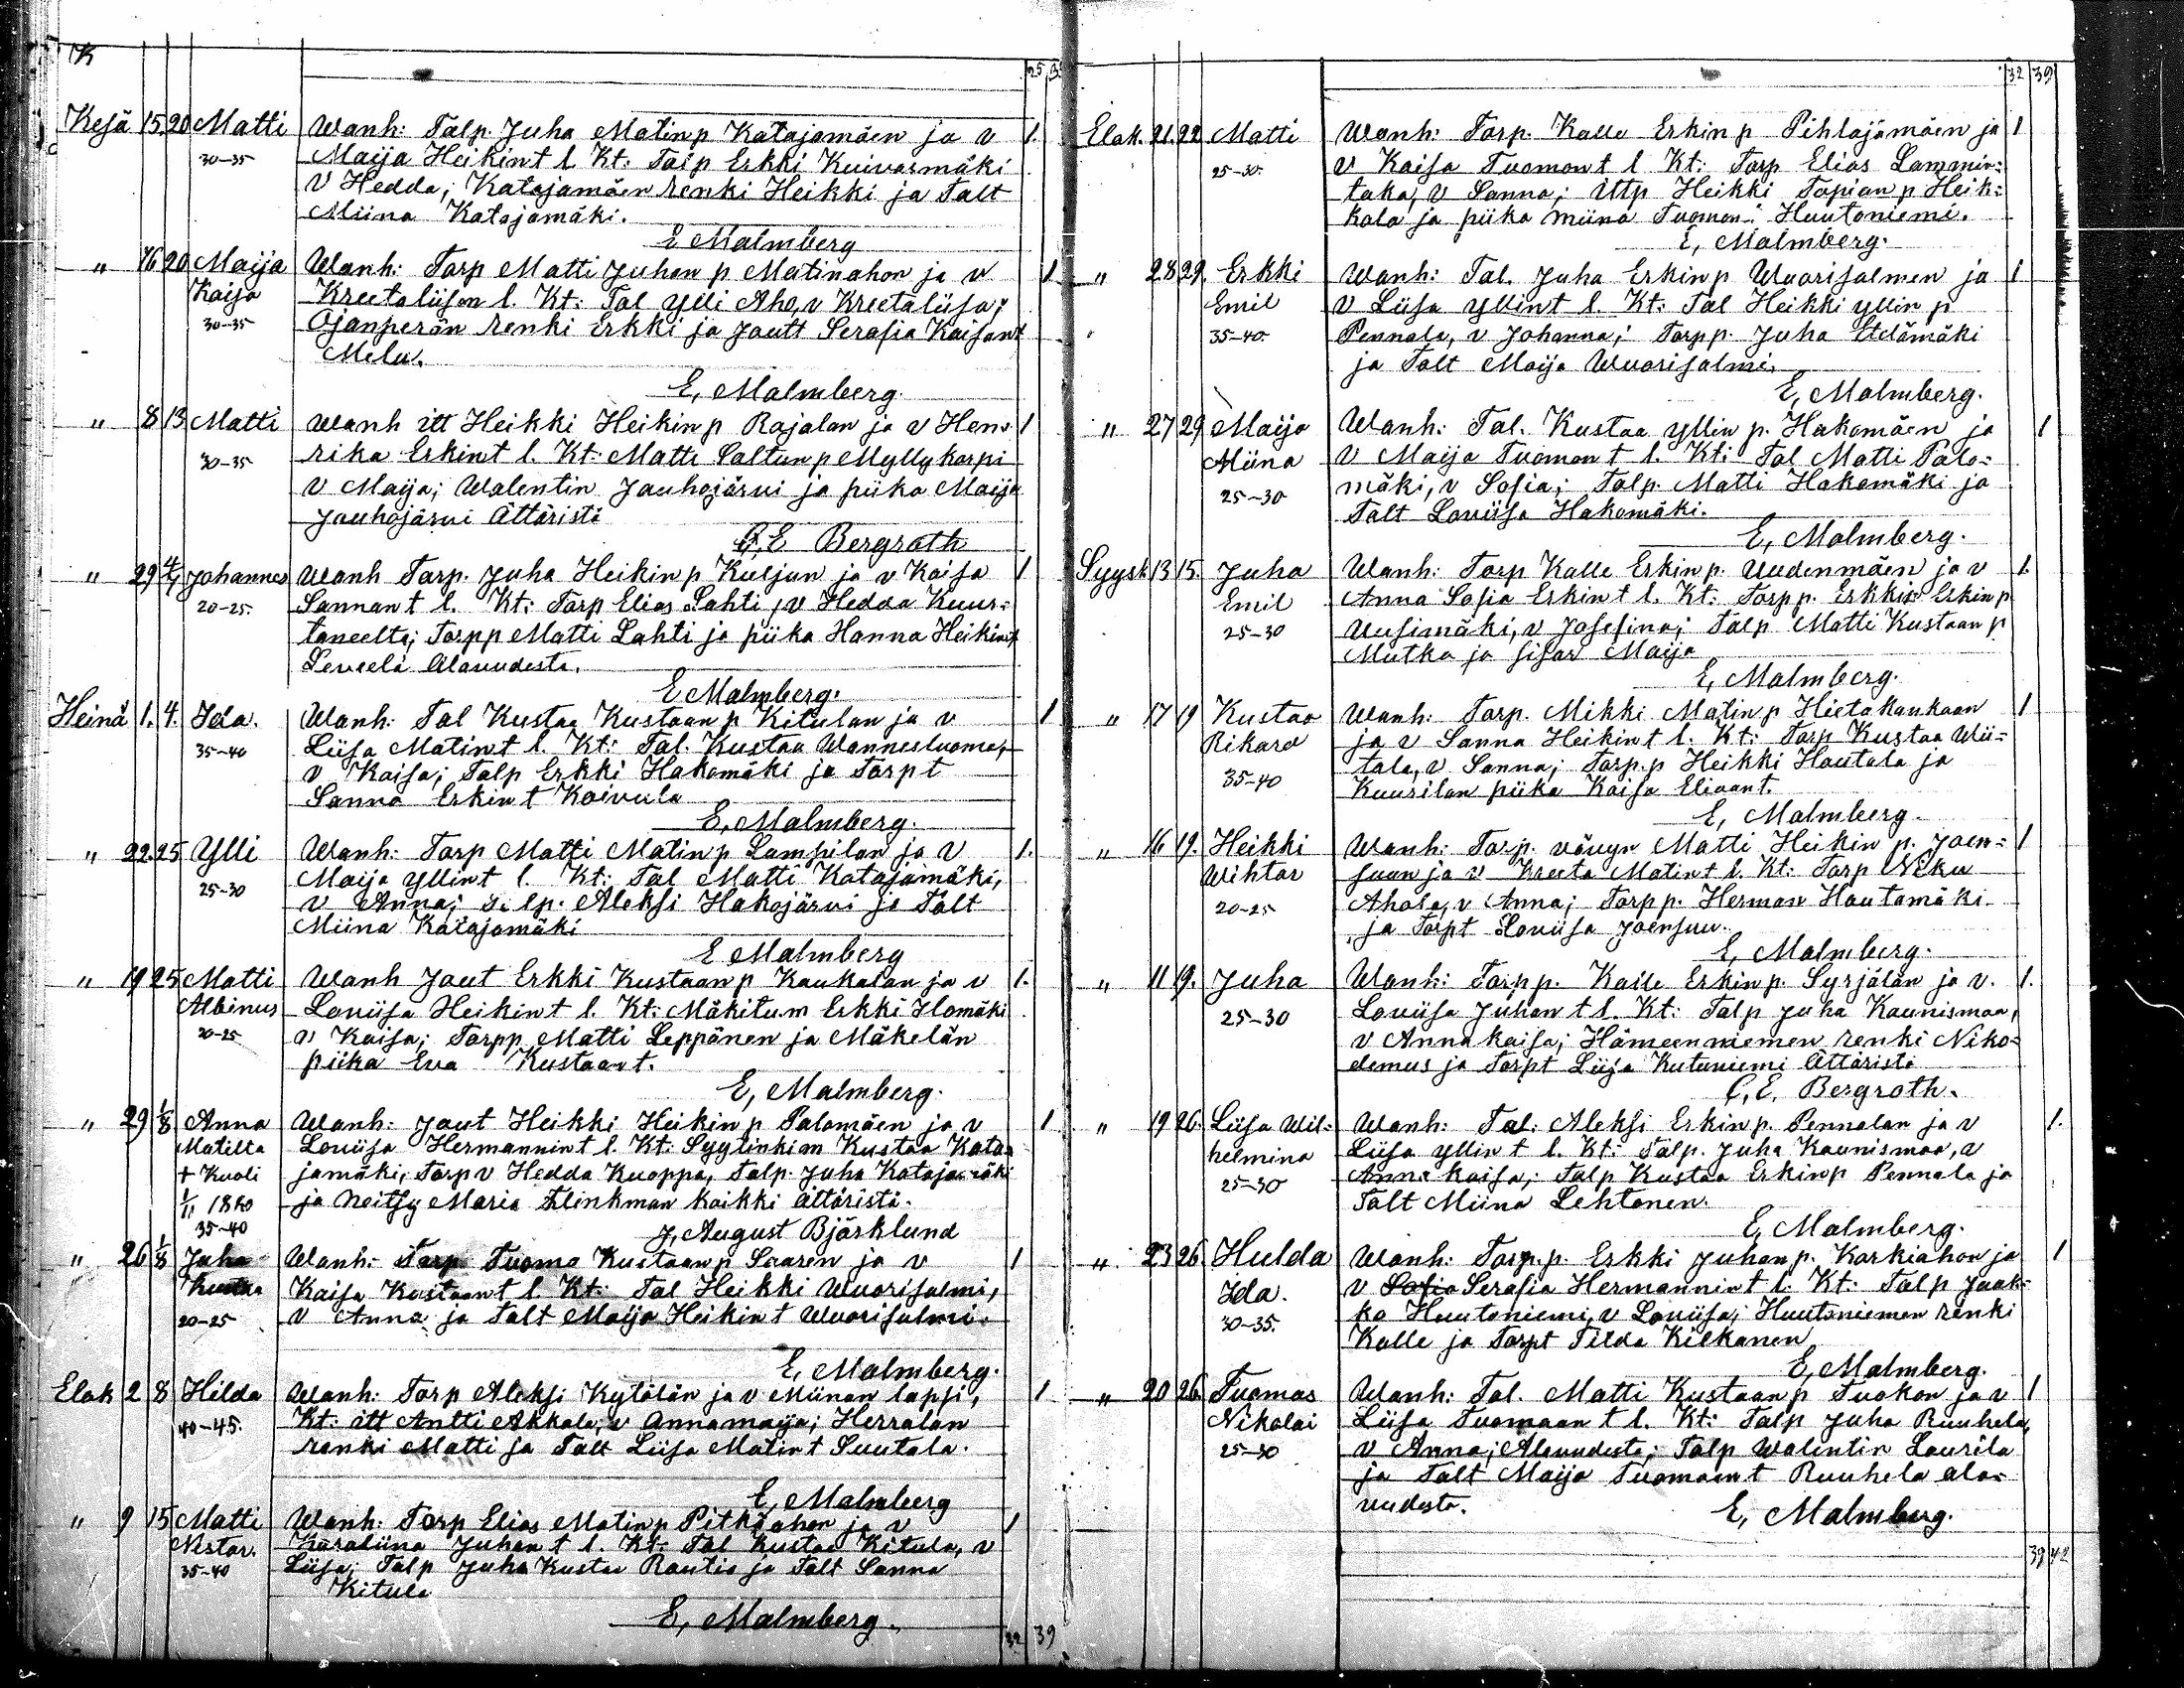 K
25 3
Kesä 15. 20 Matti Wanh: Talp. Juha Matin p Katajamäen ja v 1.
30-35 Maija Heikin t l. Kt: Talp Erkki Kuivasmäki
v Hedda; Katajamäen renki Heikki ja Talt
Miina Katajamäki.
E Malmberg
" 16 20 Maija Wanh: Torp Matti Juhan p Matinahon ja v 1
Kaisa Kreetaliisan l. Kt: Tal Ylli Aho, v Kreetaliisa;
30-35 Ojanperän renki Erkki ja Jautt Serafia Kaisant
Melu.
E, Malmberg.
" 8 13 Matti Wanh itt Heikki Heikin p Rajalan ja v Hen= 1
30-35 rika Erkin t l. Kt: Matti Saltun p Myllykarpi
v Maija; Walentin Jauhojärvi ja piika Maija
Jauhojärvi Ättäristä
C, E Bergroth
" 29 4/7 Johannes Wanh Torp. Juha Heikin p Kuljun ja v Kaisa 1
20-25. Sannan t l. Kt: Torp Elias Lahti, v Hedda Kuur=
taneelta; Torpp Matti Lahti ja piika Hanna Heikint
Leveelä Alavudesta.
E Malmberg.
Heinä 1. 4. Ida. Wanh: Tal Kustaa Kustaan p Kitulan ja v 1
35-40 Liisa Matint l. Kt: Tal. Kustaa Wannesluoma,
v Kaisa; Talp Erkki Hakomäki ja Torpt
Sanna Erkin t Koivula
E, Malmberg.
" 22. 25 Ylli Wanh: Torp Matti Matin p Lampilan ja v 1.
25-30 Maija Yllint l. Kt: Tal Matti Katajamäki,
v Anna; Talp. Aleksi Hakojärvi ja Talt
Miina Katajamäki
E Malmberg
" 19 25 Matti Wanh Jaut Erkki Kustaan p Kaukalan ja v 1.
Albinus Loviisa Heikint l. Kt: Mäkitum Erkki Ilomäki
20-25 v Kaisa; Torpp Matti Leppänen ja Mäkelän
piika Eva Kustaant.
E, Malmberg.
" 29 1/8 Anna Wanh: Jaut Heikki Heikin p Palomäen ja v 1
Matilta Loviisa Hermannint l. Kt: Syytinkim Kustaa Kata=
+ Kuoli jamäki, Torp v Hedda Kuoppa, Talp. Juha Katajamäki
1/11 1880 ja Neitsy Maria Flinkman kaikki Ättäristä.
35-40 J, August Björklund
" 26 1/8 Juha Wanh: Torp Tuomo Kustaan p Saaren ja v 1
Kustaa Kaisa Kustaant l. Kt: Tal Heikki Wuorisalmi,
20-25 v Anna ja Talt Maija Heikin t Wuorisalmi.
E, Malmberg.
Elok 2 8 Hilda Wanh: Torp Aleksi Kytölän ja v Miinan lapsi, 1
40-45. Kt: itt Antti Akkala, v Annamaija; Herralan
renki Matti ja Talt Liisa Matint Suutala.
E, Malmberg
" 9 15 Matti Wanh: Torp Elias Matin p Pitkäahon ja v 1
Nestor. Karoliina Juhan t l. Kt: Tal Kustaa Kitula, v
35-40 Liisa; Talp Juha Kustaa Rautio ja Talt Sanna
Kitula
E, Malmberg.
32 39
32 39
Elok. 21. 22 Matti Wanh: Torp. Kalle Erkin p Pihlajämäen ja 1
25-30. v Kaisa Tuomon t l Kt: Torp Elias Lammin=
taka, v Sanna; ittp Heikki Tapian p Heik=
kola ja piika Miina Tuomon t Huutoniemi.
E, Malmberg.
" 28 29. Erkki Wanh: Tal. Juha Erkin p Wuorisalmen ja 1
Emil v Liisa Yllint l. Kt: Tal Heikki Yllin p
35-40. Pennala, v Johanna; Torpp. Juha Etelämäki
ja Talt Maija Wuorisalmi.
E, Malmberg.
" 27 29 Maija Wanh: Tal. Kustaa Yllin p. Hakomäen ja 1
Miina v Maija Tuomon t l. Kt: Tal Matti Palo=
25-30 mäki, v Sofia; Talp. Matti Hakomäki ja
Talt Loviisa Hakomäki.
E, Malmberg.
Syysk 13 15. Juha Wanh: Torp Kalle Erkin p. Uudenmäen ja v 1.
Emil Anna Sofia Erkin t l. Kt: Torp p. Erkki Erkin p
25-30 Uusimäki, v Josefina; Talp Matti Kustaan p
Mutka ja sisar Maija
E, Malmberg.
" 17 19 Kustaa Wanh: Torp. Mikki Matin p Hietakankaan 1
Rikard ja v Sanna Heikint l. Kt: Torp Kustaa Wii=
35-40 tala, v Sanna; Torp.p Heikki Hautala ja
Kuurilan piika Kaisa Eliaant.
E, Malmberg.
" 16 19. Heikki Wanh: Torp. vävyn Matti Heikin p. Joen= 1
Wihtor suun ja v Kreeta Matint l. Kt: Torp Niku
20-25 Ahola, v Anna; Torpp. Herman Hautamäki
ja Torpt Loviisa Joensuu.
E, Malmberg.
" 11 19. Juha Wanh: Torpp. Kalle Erkin p. Syrjälän ja v. 1.
25-30 Loviisa Juhan t l. Kt: Talp Juha Kaunismaa,
v Anna kaisa; Hämeenniemen renki Niko=
demus ja Torpt Liisa Kutuniemi Ättäristä
C, E, Bergroth.
" 19 26. Liisa Wil= Wanh: Tal: Aleksi Erkin p. Pennalan ja v 1.
helmina Liisa Yllin t l. Kt: Talp. Juha Kaunismaa, v
25-30 Anna kaisa; Talp Kustaa Erkin p Pennala ja
Talt Miina Lehtonen.
E, Malmberg.
" 23 26 Hulda Wanh: Torp.p. Erkki Juhan p. Karkiahon ja 1
Ida. v Sofia Serafia Hermannint l. Kt: Talp Jaak=
30-35. ko Huutoniemi, v Loviisa; Huutoniemen renki
Kalle ja Torpt Tilda Kilkanen
E, Malmberg.
" 20 26 Tuomas Wanh: Tal. Matti Kustaan p Tuokon ja v 1
Nikolai Liisa Tuomaan t l. Kt: Talp Juha Ruuhela,
25-30 v Anna; Alavudesta; Talp Walintin Laurila
ja Talt Maija Tuomaant Ruuhela ala=
vudesta. E, Malmberg.
39 42